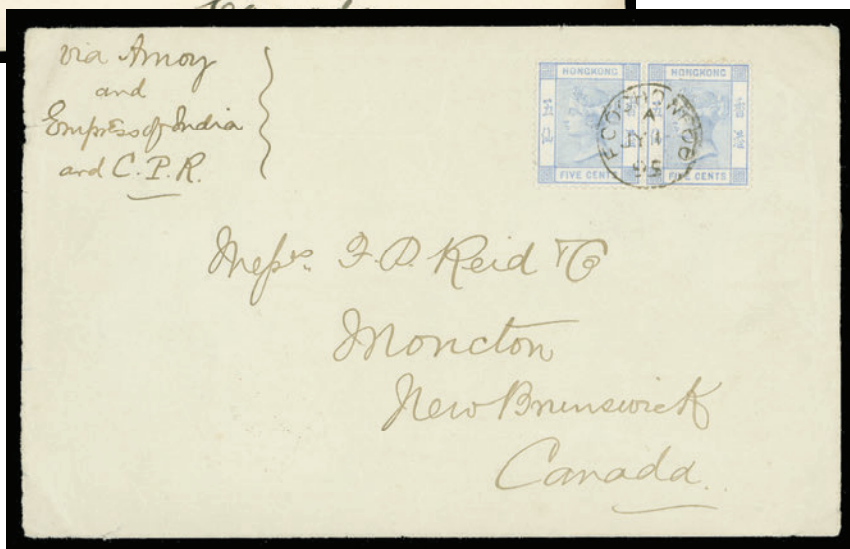 via Amoy
and
Empress of India
and C. P. R.
HONGKONG
HONGKONG
FIVE CENTS
FIVE CENTS
FOOCHOW
A
Messrs. F. P. Reid & Co
Moncton
New Brunswick
Canada.